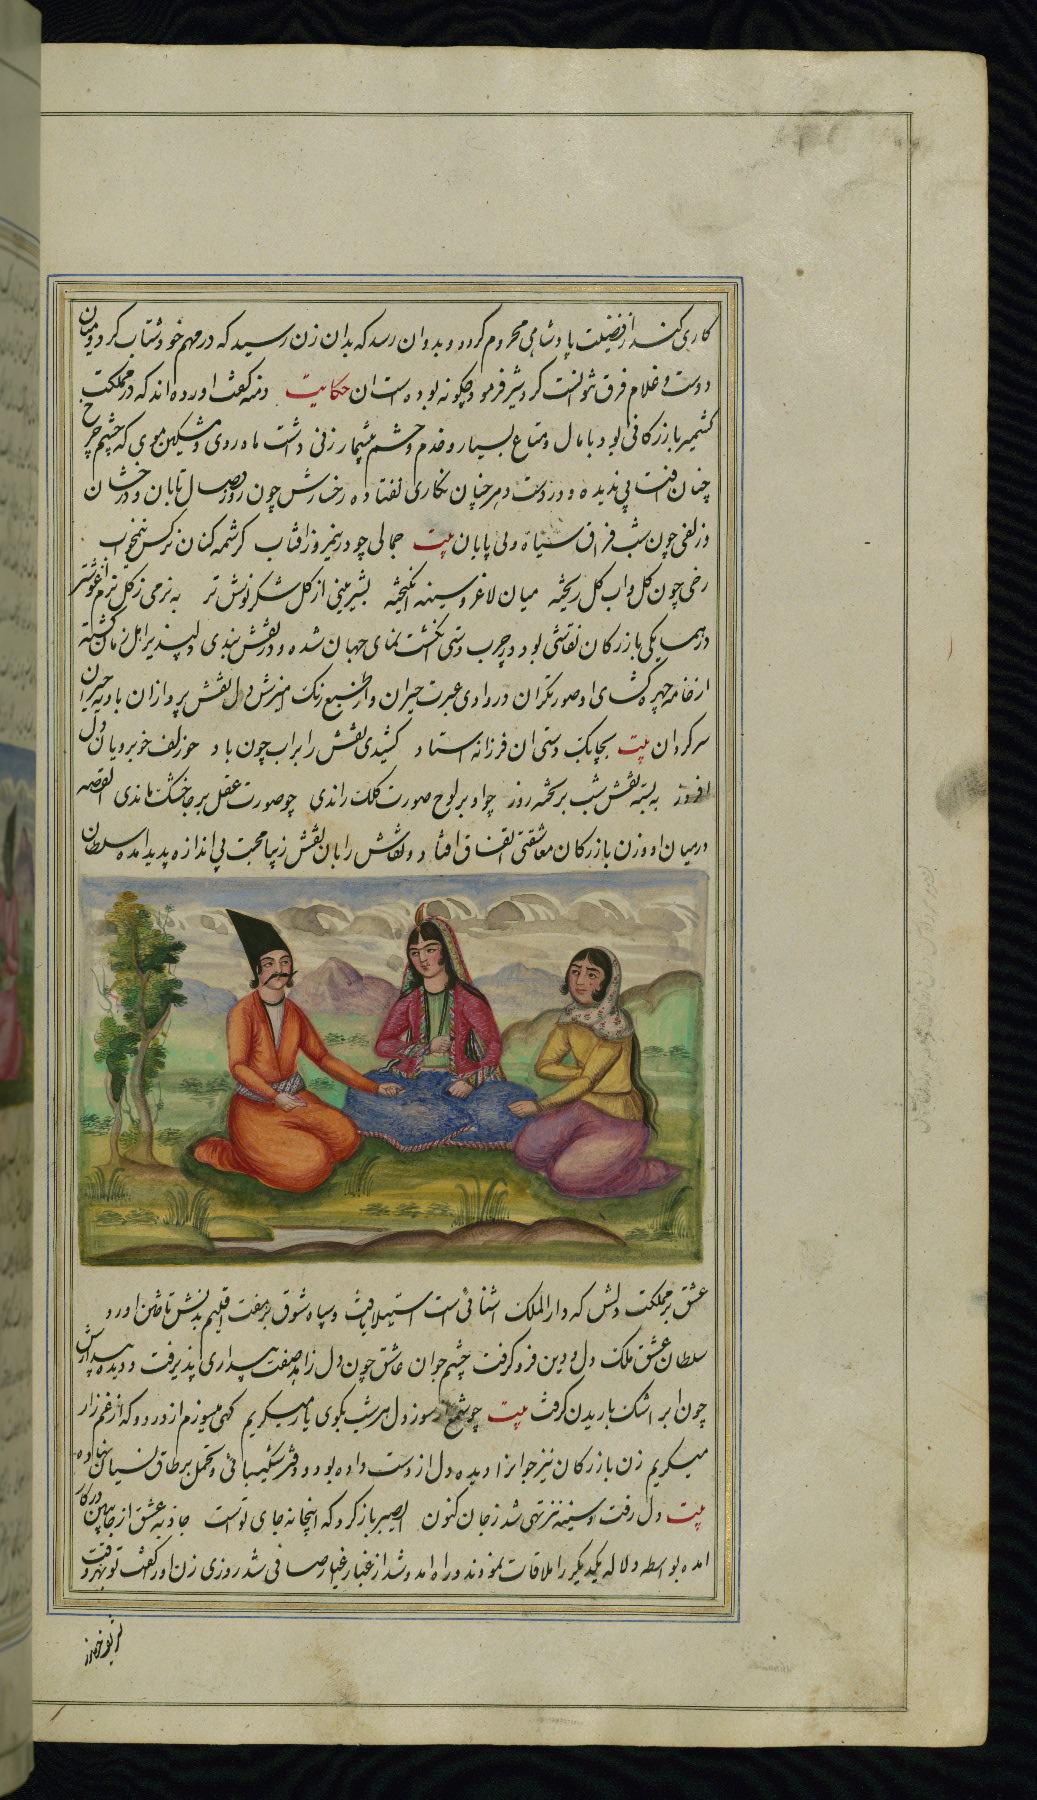 کاری کند از فضیلت پادشاهی محروم گردد و بدو آن رسد که بدان زن رسید که در مهم خود شتاب کرد و میان
دوست و غلام فرق نتوانست کرد شیر فرمود چگونه بوده است ان حکایت دمنه گفت اورده اند که در مملکت
کشمیر بازرگانی بود با مال و متاع بسیار و خدم و حشم بیشمار زنی داشت ماه روی و مشکین موی که چشم چرخ
چنان افتابی ندیده و در دست دهر چنان نگاری نیفتاده رخسارش چون روز وصال تابان و درخشان
و زلفی چون شب فراق سیاه و بی پایان بیت جمالی چو در نیمروز افتاب کرشمه کنان نرگس نیمخواب
رخی چون گل و اب گل ریخته میان لاغر و سینه انگیخته بشیرینی از گل شکر نوش تر به نرمی ز گل نرم اغوش تر
در همسایگی بازرگان نقاشی بود در چرب دستی انگشت نمای جهان شده و در نقش بندی دلپذیر اهل زمان گشته
از خامه چهره گشای او صورتگران در وادی عبرت حیران و از طبع رنگ امیزش دل نقش پردازان بادیه حیرت
سرگردان بیت بچابک دستی ان فرزانه استاد کشیدی نقش را بر اب چون باد چو زلف خوبرویان دل
افروز به بسته نقش شب بر تخته روز چو او بر لوح صورت کلک راندی چو صورت عقل بر جا خشک ماندی القصه
در میان او و زن بازرگان معاشقتی اتفاق افتاد و نقاش را بان نقش زیبا محبت بی اندازه پدید امده سلطان
عشق بر مملکت دلش که دار الملک اشنائی است استیلا یافت و سپاه شوق بر هفت اقلیم بدنش تاختن اورد
سلطان عشق ملک دل و دین فرو گرفت چشم جوان عاشق چون دل زاهد صفت بیداری پذیرفت و دیده بیدارش
چون ابر اشک باریدن گرفت بیت چو شمع از سوز دل هر شب بکوی یار میگریم گهی میسوزم از درد و گه از غم زار
میگریم زن بازرگان نیز جوانرا دیده دل از دست داده بود و دفتر شکیبائی و تحمل بر طاق نسیان نهاده
بیت دل رفت و سینه نیز تهی شد ز جان کنون ای صبر باز گرد که اینجا نه جای توست جاذبه عشق از جانبین در کار
امده بواسطه دلاله یکدیگر را ملاقات نمودند و راه امد و شد از غبار اغیار صافی شد روزی زن او را گفت تو بهر وقت